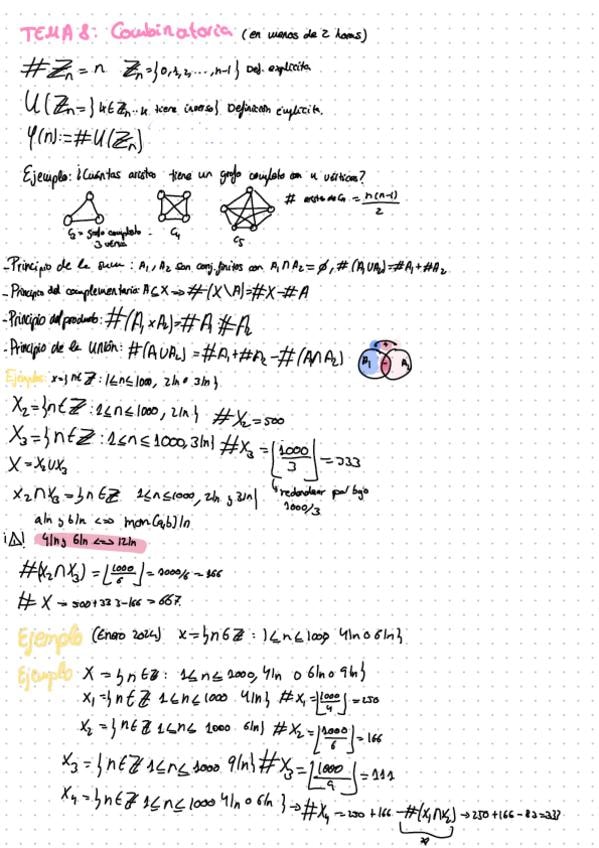 TEMA 8: Combinatoria (en menos de 2 horas)
#ℤn = n ℤn = {0,1,2,...,n-1} Def. explícita
U(ℤn = {k∈ℤn : k tiene inverso} Definición implícita.
φ(n) := #U(ℤn)
Ejemplo: ¿Cuántas aristas tiene un grafo completo con n vértices?
# aristas de Cn = n(n-1)/2
C3 = grafo completo
3 vérti
C4
C5
- Principio de la suma: A1, A2 son conj. finitos con A1∩A2 = ∅, #(A1∪A2) = #A1 + #A2
- Principio del complementario: A⊆X → #(X\A) = #X - #A
- Principio del producto: #(A1×A2) = #A1 #A2
- Principio de la Unión: #(A∪A2) = #A1 + #A2 - #(A∩A2)
A1 - A2
Ejemplo: x={n∈ℤ: 1≤n≤1000, 2|n o 3|n}
X2 = {n∈ℤ: 1≤n≤1000, 2|n} #X2 = 500
X3 = {n∈ℤ: 1≤n≤1000, 3|n} #X3 = ⌊1000/3⌋ = 333
X = X2∪X3
redondear por bajo
1000/3
X2∩X3 = {n∈ℤ 1≤n≤1000, 2|n y 3|n}
a|n y b|n <=> mcm(a,b)|n
¡⚠! 4|n y 6|n <=> 12|n
#(X2∩X3) = ⌊1000/6⌋ = 1000/6 = 166
#X = 500+333-166 = 667.
Ejemplo (Enero 2024) X={n∈ℤ: 1≤n≤1000 4|n o 6|n}
Ejemplo X = {n∈ℤ: 1≤n≤1000, 4|n o 6|n o 9|n}
X1 = {n∈ℤ 1≤n≤1000 4|n} #X1 = ⌊1000/4⌋ = 250
X2 = {n∈ℤ 1≤n≤1000 6|n} #X2 = ⌊1000/6⌋ = 166
X3 = {n∈ℤ 1≤n≤1000 9|n} #X3 = ⌊1000/9⌋ = 111
X4 = {n∈ℤ 1≤n≤1000 4|n o 6|n} → #X4 = 250+166-#(X1∩X2) → 250+166-83=333